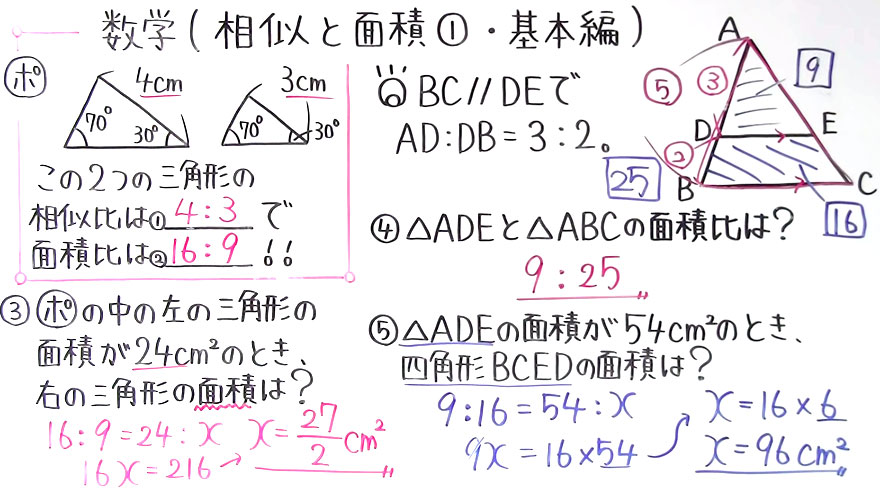 数学(相似と面積①・基本編)
ポ
4cm
3cm
70°
30°
70°
30°
この2つの三角形の
相似比は① 4:3 で
面積比は② 16:9 !!
BC//DEで
AD:DB=3:2。
A
⑤
③
9
D
E
②
25
B
C
16
④△ADEと△ABCの面積比は?
9:25
③ポの中の左の三角形の
面積が24cm²のとき、
右の三角形の面積は?
16:9=24:x
16x=216
x=27/2 cm²
⑤△ADEの面積が54cm²のとき、
四角形BCEDの面積は?
9:16=54:x
9x=16×54
x=16×6
x=96cm²